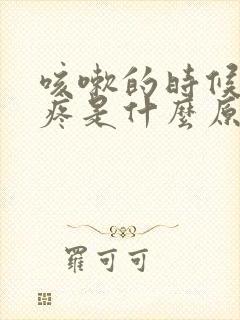 咳嗽的時候
疼是什麼原
羅可可